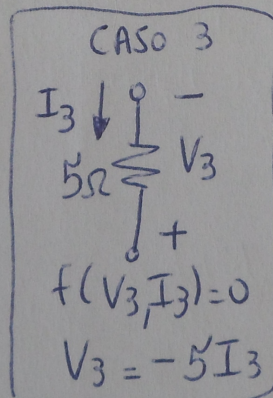 CASO 3
I₃ −
5Ω V₃
+
f(V₃,I₃)=0
V₃=-5I₃